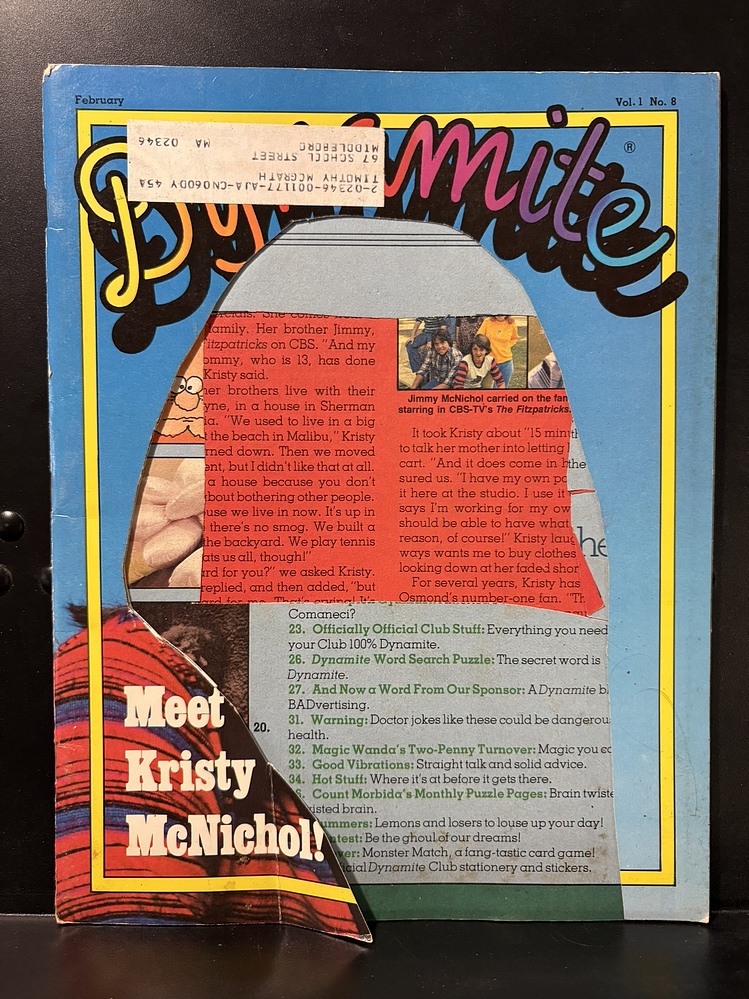 February
Vol. 1 No. 8
Dynamite ®
2-02346-001177-AJA-CN060DY 45A
TIMOTHY MCGRATH
67 SCHOOL STREET
MIDDLEBORO MA 02346
She comes
family. Her brother Jimmy,
Fitzpatricks on CBS. "And my
ommy, who is 13, has done
Kristy said.
her brothers live with their
yne, in a house in Sherman
a. "We used to live in a big
the beach in Malibu," Kristy
med down. Then we moved
ent, but I didn't like that at all.
a house because you don't
bout bothering other people.
use we live in now. It's up in
there's no smog. We built a
the backyard. We play tennis
ats us all, though!"
rd for you?" we asked Kristy.
replied, and then added, "but
ard for me. That's
Jimmy McNichol carried on the fam
starring in CBS-TV's The Fitzpatricks.
It took Kristy about "15 min
to talk her mother into letting
cart. "And it does come in h
sured us. "I have my own po
it here at the studio. I use it
says I'm working for my ow
should be able to have what
reason, of course!" Kristy laug
ways wants me to buy clothes
looking down at her faded shor
For several years, Kristy has
Osmond's number-one fan. "Th
he
Comaneci?
23. Officially Official Club Stuff: Everything you need
your Club 100% Dynamite.
26. Dynamite Word Search Puzzle: The secret word is
Dynamite.
27. And Now a Word From Our Sponsor: A Dynamite bl
BADvertising.
20.
31. Warning: Doctor jokes like these could be dangerou
health.
32. Magic Wanda's Two-Penny Turnover: Magic you ca
33. Good Vibrations: Straight talk and solid advice.
34. Hot Stuff: Where it's at before it gets there.
6. Count Morbida's Monthly Puzzle Pages: Brain twiste
isted brain.
ummers: Lemons and losers to louse up your day!
ntest: Be the ghoul of our dreams!
ver: Monster Match, a fang-tastic card game!
icial Dynamite Club stationery and stickers.
Meet
Kristy
McNichol!